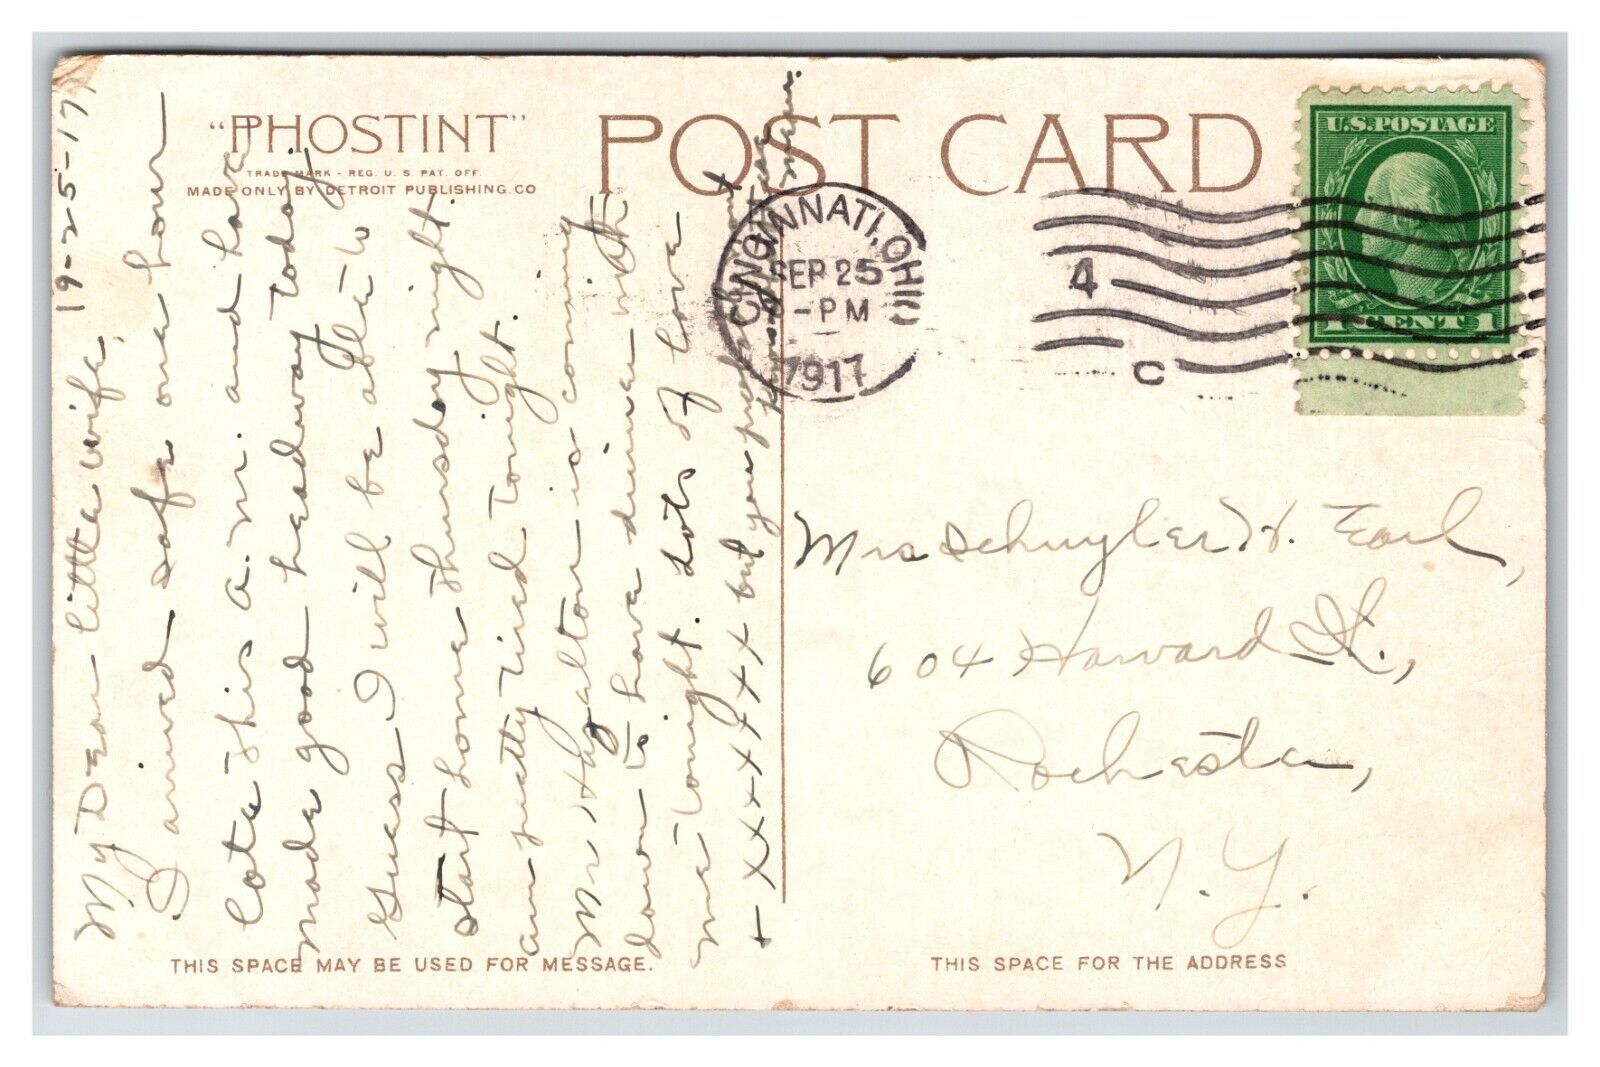 "PHOSTINT"
TRADE MARK - REG. U. S. PAT. OFF.
MADE ONLY BY DETROIT PUBLISHING CO
POST CARD
CINCINNATI, OHIO
SEP 25
-PM
1917
4
C
U.S. POSTAGE
1 CENT 1
19-25-17,
My Dear little wife,
I arrived safe one hour
late this a.m. and have
made good headway today.
Guess I will be able to
start home Thursday night.
am pretty tired tonight.
Mr Hazelton is coming
down to have dinner with
me tonight. Lots of love
+ xxxxxxx but you
Mrs Schuyler H. Earl,
604 Harvard St.,
Rochester,
N.Y.
THIS SPACE MAY BE USED FOR MESSAGE.
THIS SPACE FOR THE ADDRESS